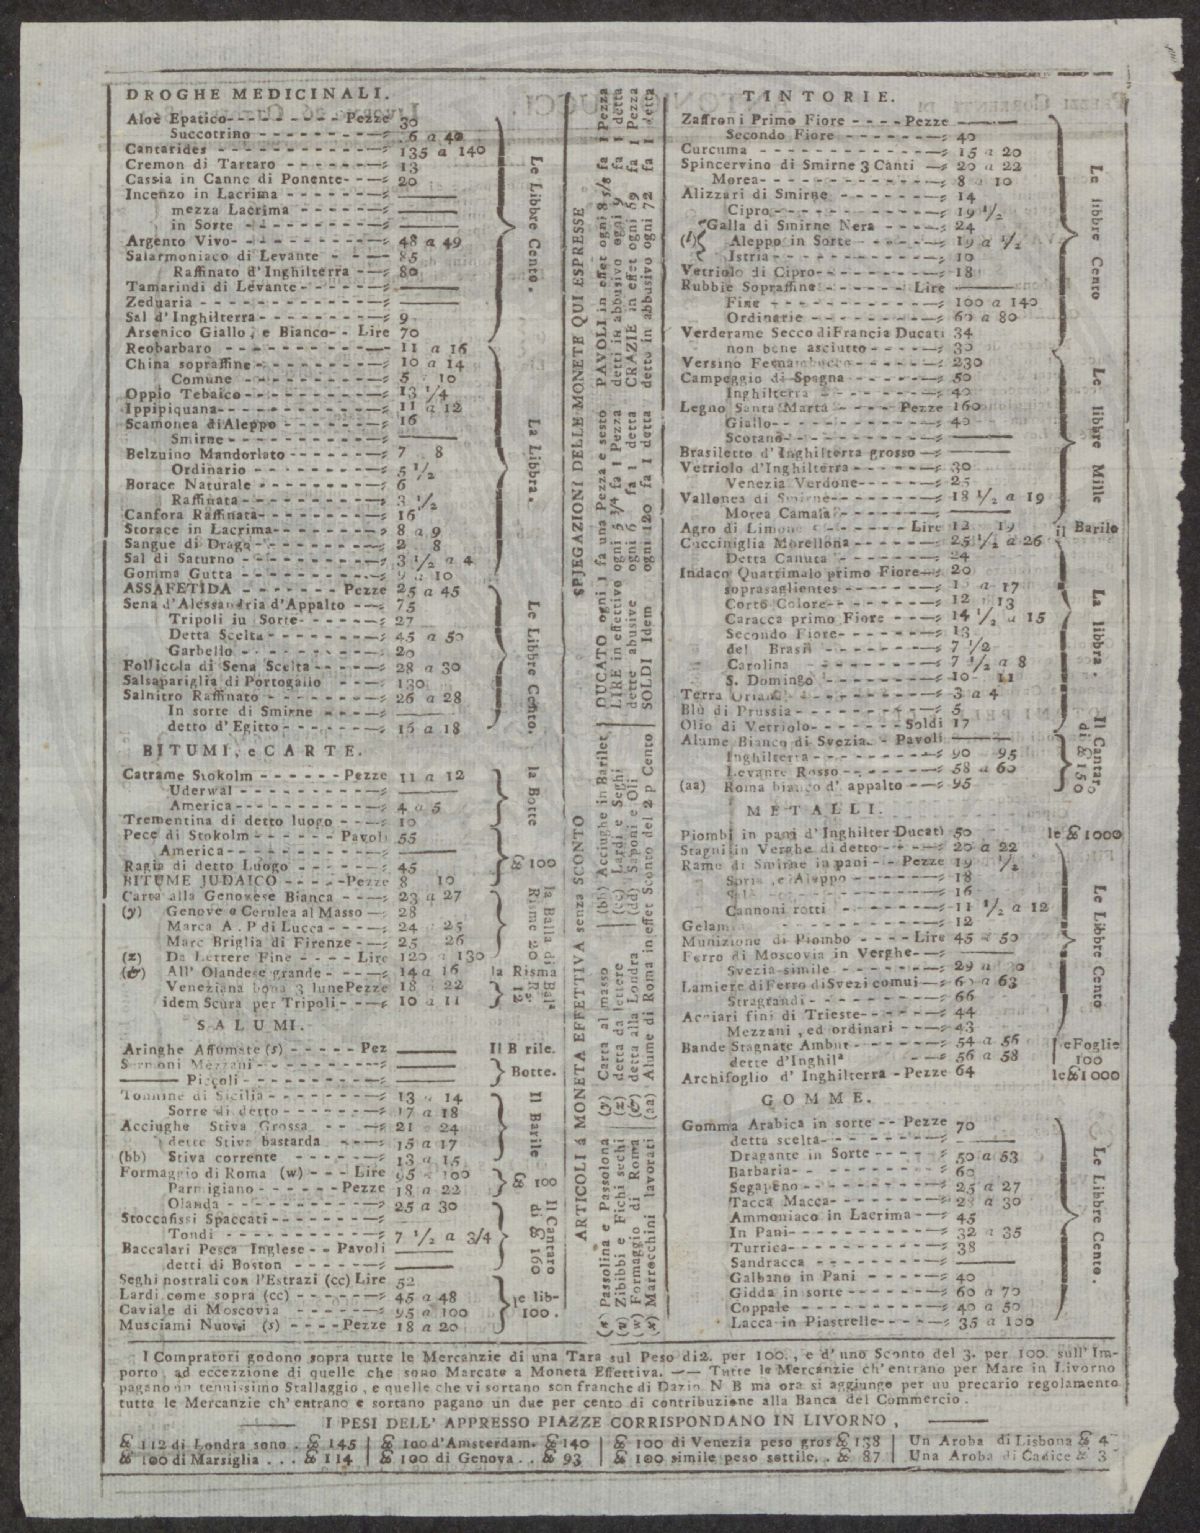 DROGHE MEDICINALI.
Aloè Epatico - - - - - - - - - - Pezze 30
Succotrino - - - - - - - - - - - 6 a 40
Cantarides - - - - - - - - - - - 135 a 140
Cremon di Tartaro - - - - - - - 13
Cassia in Canne di Ponente - - - 20
Incenzo in Lacrima - - - - - - -
mezza Lacrima - - - - - - -
in Sorte - - - - - - - - -
Argento Vivo - - - - - - - - - 48 a 49
Salarmoniaco di Levante - - - - 85
Raffinato d'Inghilterra - - 80
Tamarindi di Levante - - - - - -
Zeduaria - - - - - - - - - - - -
Sal d'Inghilterra - - - - - - - 9
Arsenico Giallo, e Bianco - - Lire 70
Le Libbre Cento.
Reobarbaro - - - - - - - - - - 11 a 16
China sopraffine - - - - - - - 10 a 14
Comune - - - - - - - - - 5 10
Oppio Tebaico - - - - - - - - - 13 1/4
Ippipiquana - - - - - - - - - - 11 a 12
Scamonea di Aleppo - - - - - - 16
Smirne - - - - - - - - -
Belzuino Mandorlato - - - - - - 7 8
Ordinario - - - - - - - - 5 1/2
Borace Naturale - - - - - - - - 6
Raffinata - - - - - - - - 3 1/2
Canfora Raffinata - - - - - - - 16
Storace in Lacrima - - - - - - 8 a 9
Sangue di Drago - - - - - - - - 2 8
Sal di Saturno - - - - - - - - 3 1/2 a 4
Gomma Gutta - - - - - - - - - 9 a 10
La Libbra.
ASSAFETIDA - - - - - - - Pezze 25 a 45
Sena d'Alessandria d'Appalto - - 75
Tripoli in Sorte - - - - - 27
Detta Scelta - - - - - - - 45 a 50
Garbello - - - - - - - - - 20
Follicola di Sena Scelta - - - - 28 a 30
Salsapariglia di Portogallo - - 130
Salnitro Raffinato - - - - - - 26 a 28
In sorte di Smirne - - - -
detto d'Egitto - - - - - - 16 a 18
Le Libbre Cento.
BITUMI, e CARTE.
Catrame Stokolm - - - - - - Pezze 11 a 12
Uderwal - - - - - - - - -
America - - - - - - - - - 4 a 5
Trementina di detto luogo - - - 10
la Botte
Pece di Stokolm - - - - - Pavoli 55
America - - - - - - - - -
Ragia di detto Luogo - - - - - 45
BITUME JUDAICO - - - - - Pezze 8 10
℔ 100
Carta alla Genovese Bianca - - - 23 a 27
(y) Genove o Cerulea al Masso - 28
Marca A. P di Lucca - - - - 24 25
Marc Briglia di Firenze - - 25 26
la Balla di Risme 20
(z) Da Lettere Fine - - - - Lire 120 a 130
(&) All' Olandese grande - - - - 14 a 16 la Risma
Veneziana bona 3 lune Pezze 18 22
idem Scura per Tripoli - - - 10 a 11
12
SALUMI.
Aringhe Affumate (s) - - - - - Pez Il B rile.
Sermoni Mezzani - - - - - - -
Piccoli - - - - - - - - - -
Botte.
Tonnine di Sicilia - - - - - - 13 14
Sorre di detto - - - - - - 17 a 18
Acciughe Stiva Grossa - - - - 21 24
dette Stiva bastarda - - - 15 a 17
(bb) Stiva corrente - - - - - 13 a 15
Il Barile
Formaggio di Roma (w) - - - Lire 95 100
Parmigiano - - - - - - Pezze 18 a 22
℔ 100
Olanda - - - - - - - - - 25 a 30
Stoccafissi Spaccati - - - - -
Tondi - - - - - - - - - - 7 1/2 a 3/4
Baccalari Pesca Inglese - - Pavoli
detti di Boston - - - - - -
Il Cantaro di ℔ 160
Seghi nostrali con l'Estrazi (cc) Lire 52
Lardi come sopra (cc) - - - - - 45 a 48
Caviale di Moscovia - - - - - - 95 a 100
Musciami Nuovi (s) - - - - Pezze 18 a 20
le lib- 100.
SPJEGAZIONI DELLE MONETE QUI ESPRESSE
DUCATO ogni 1 fa una Pezza e sesto PAVOLI in effet ogni 8 5/8 fa 1 Pezza
LIRE in effettivo ogni 5 3/4 fa 1 Pezza detti in abbusivo ogni 9 fa 1 detta
dette abusive ogni 6 fa 1 detta CRAZIE in effet ogni 69 fa 1 Pezza
SOLDI Idem ogni 120 fa 1 detta dette in abbusivo ogni 72 fa 1 detta
ARTICOLI á MONETA EFFETTIVA senza SCONTO
(x) Passolina e Passolona (y) Carta al masso (bb) Acciughe in Barilet
(u) Zibibbi e Fichi secchi (z) detta da lettere (cc) Lardi e Seghi
(w) Formaggio di Roma (&) detta alla Londra (dd) Saponi e Oli
(x) Marrocchini lavorati (aa) Alume di Roma in effet Sconto del 2 p Cento
TINTORIE.
Zaffroni Primo Fiore - - - - Pezze
Secondo Fiore - - - - - - 40
Curcuma - - - - - - - - - - 15 a 20
Spincervino di Smirne 3 Canti - 20 a 22
Morea - - - - - - - - - - 8 a 10
Alizzari di Smirne - - - - - - 14
Cipro - - - - - - - - - - 19 1/2
Galla di Smirne Nera - - - - 24
(l) Aleppo in Sorte - - - - - - 19 a 1/2
Istria - - - - - - - - - - 10
Vetriolo di Cipro - - - - - - - 18
Rubbie Sopraffine - - - - - - Lire
Fine - - - - - - - - - - 100 a 140
Ordinarie - - - - - - - - 60 a 80
Le libbre Cento
Verderame Secco di Francia Ducati 34
non bene asciutto - - - - - 30
Versino Fernambucco - - - - - 230
Campeggio di Spagna - - - - - 50
Inghilterra - - - - - - - 40
Legno Santa Marta - - - - Pezze 160
Giallo - - - - - - - - - 40
Scotano - - - - - - - - -
Brasiletto d'Inghilterra grosso -
Vetriolo d'Inghilterra - - - - - 30
Venezia Verdone - - - - - - 25
Vallonea di Smirne - - - - - - 18 1/2 a 19
Morea Camata - - - - - - -
Le libbre Mille
Agro di Limone - - - - - - Lire 12 19 il Barile
Cocciniglia Morellona - - - - - 25 1/2 a 26
Detta Canuta - - - - - - - 24
Indaco Quattimalo primo Fiore - 20
soprasaglientes - - - - - - 15 a 17
Corto Colore - - - - - - - 12 13
Caracca primo Fiore - - - - 14 1/2 a 15
Secondo Fiore - - - - - - 13
del Brasil - - - - - - - 7 1/2
Carolina - - - - - - - - 7 1/2 a 8
S. Domingo - - - - - - - 10 11
Terra Orian - - - - - - - - - 3 a 4
Blù di Prussia - - - - - - - - 5
Olio di Vetriolo - - - - - - Soldi 17
La libbra.
Alume Bianco di Svezia. - Pavoli
Inghilterra - - - - - - - 90 95
Levante Rosso - - - - - - 58 a 60
(aa) Roma bianco d' appalto - - 95
Il Cantaro di ℔ 150
METALLI.
Piombi in pani d'Inghilter Ducati 50 le ℔ 1000
Stagni in Verghe di detto - - - 20 a 22
Rame di Smirne in pani - - Pezze 19 1/2
Soria, e Aleppo - - - - - 18
16
Cannoni rotti - - - - - - 11 1/2 a 12
Gelam 12
Munizione di Piombo - - - - Lire 45 50
Ferro di Moscovia in Verghe -
Svezia simile - - - - - - 29 a 30
Lamiere di Ferro di Svezi comui - 60 a 63
Stragrandi - - - - - - - 66
Acciari fini di Trieste - - - - 44
Mezzani, ed ordinari - - - 43
Le Libbre Cento
Bande Stagnate Ambur - - - - - 54 a 56
dette d'Inghil.ª - - - - - 56 a 58
le Foglie 100
Archifoglio d' Inghilterra - Pezze 64 le ℔ 1000
GOMME.
Gomma Arabica in sorte - - Pezze 70
detta scelta - - - - - - -
Dragante in Sorte - - - - - 50 a 53
Barbaria - - - - - - - - - 60
Segapeno - - - - - - - - - 25 a 27
Tacca Macca - - - - - - - - 28 a 30
Ammoniaco in Lacrima - - - 45
In Pani - - - - - - - - - 32 a 35
Turrica - - - - - - - - - 38
Sandracca - - - - - - - -
Galbano in Pani - - - - - 40
Gidda in sorte - - - - - - 60 a 70
Coppale - - - - - - - - - 40 a 50
Lacca in Piastrelle - - - - 35 a 100
Le Libbre Cento.
I Compratori godono sopra tutte le Mercanzie di una Tara sul Peso di 2. per 100., e d'uno Sconto del 3. per 100. sull' Im-
porto, ad eccezzione di quelle che sono Marcate a Moneta Effettiva. —— Tutte le Mercanzie ch'entrano per Mare in Livorno
pagano un tenuissimo Stallaggio, e quelle che vi sortano son franche di Dazio. N B ma ora si aggiunge per un precario regolamento
tutte le Mercanzie ch' entrano e sortano pagano un due per cento di contribuzione alla Banca del Commercio.
I PESI DELL' APPRESSO PIAZZE CORRISPONDANO IN LIVORNO,
℔ 112 di Londra sono. ℔ 145 | ℔ 100 d'Amsterdam- ℔ 140 | ℔ 100 di Venezia peso gros ℔ 138 | Un Aroba di Lisbona ℔ 4
℔ 100 di Marsiglia ... ℔ 114 | ℔ 100 di Genova .. ℔ 93 | ℔ 100 simile peso sottile. . ℔ 87 | Una Aroba di Cadice ℔ 3